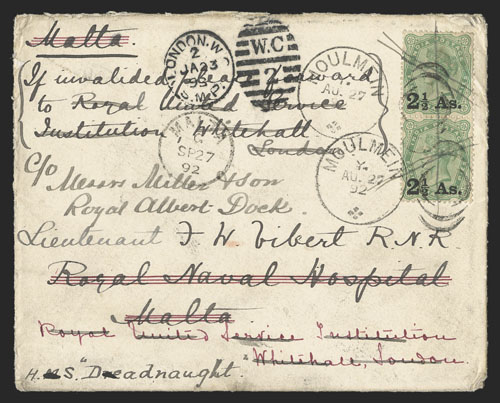 Malta.
LONDON.W.C
2
JA 23
93
W.C
27
MOULMEIN
AU. 27
2½ As.
If invalided please forward
to Royal United Service
Institution Whitehall
London
MALTA
SP 27
92
MOULMEIN
AU. 27
92
2½ As.
C/o
Messrs Miller & Son
Royal Albert Dock.
Lieutenant F W Vibert R.N.R.
Royal Naval Hospital
Malta
Royal United Service Institution
Whitehall, London.
H.M.S. "Dreadnaught."